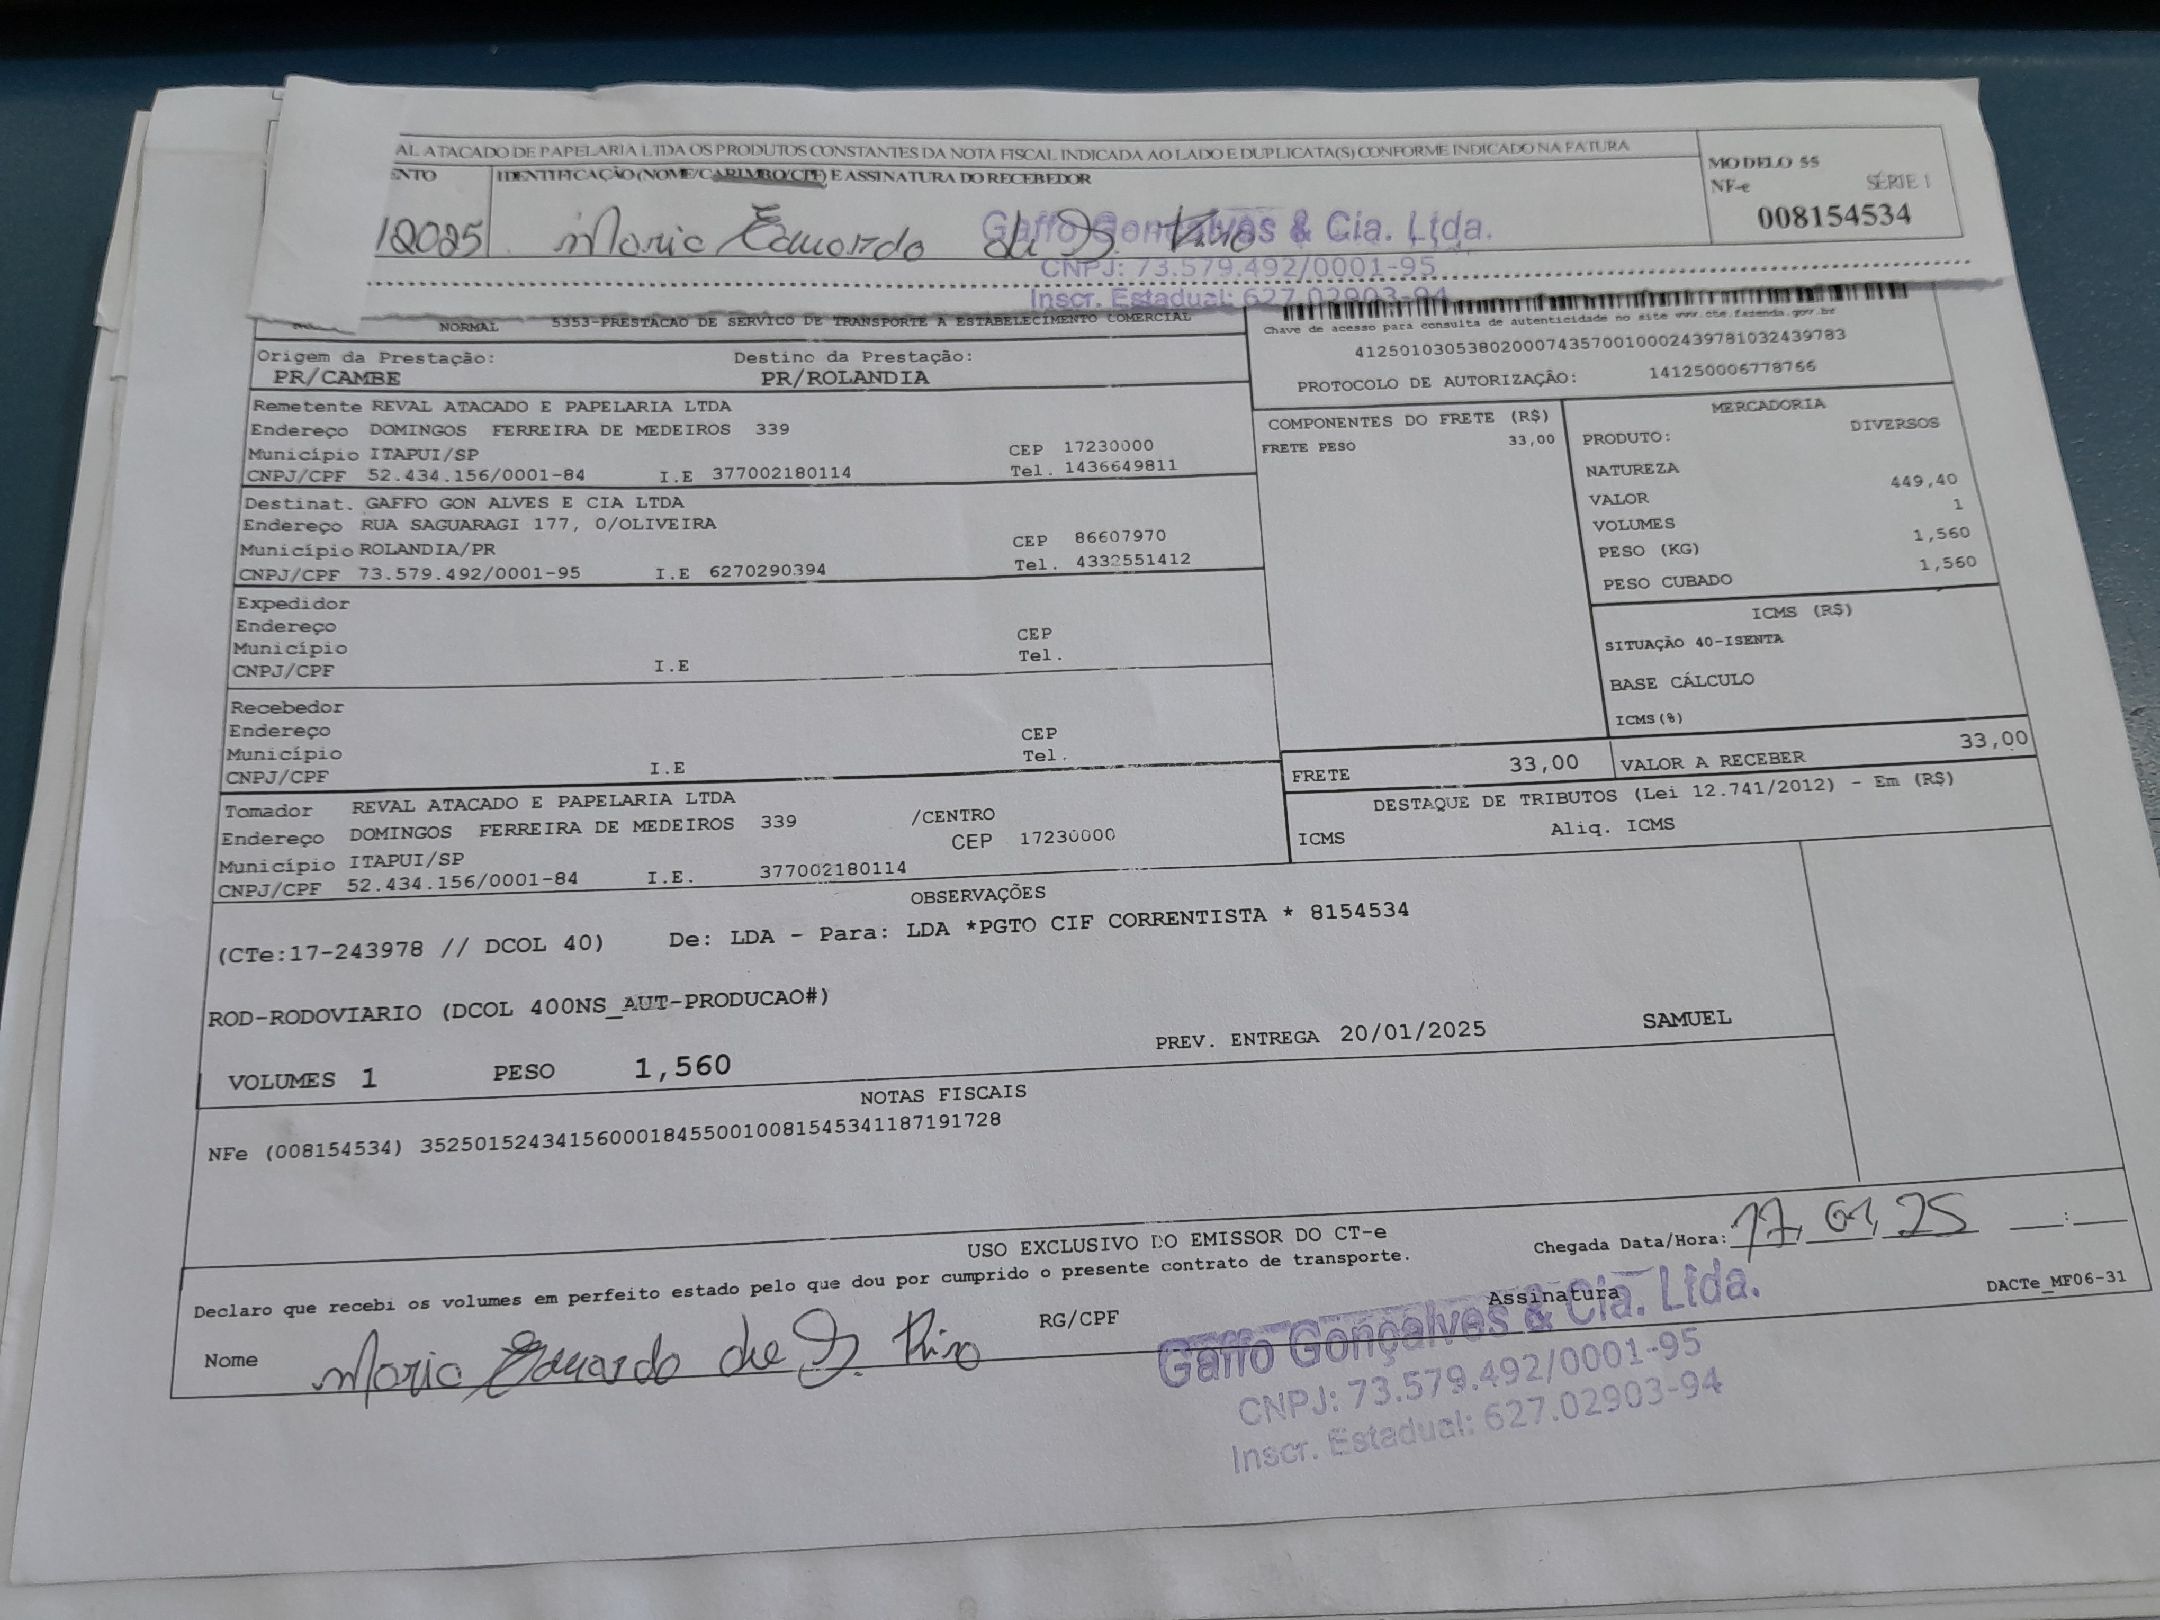 AL ATACADO DE PAPELARIA LTDA OS PRODUTOS CONSTANTES DA NOTA FISCAL INDICADA AO LADO E DUPLICATA(S) CONFORME INDICADO NA FATURA
ENTO IDENTIFICAÇÃO (NOME/CARIMBO/CPF) E ASSINATURA DO RECEBEDOR
MODELO 55
NF-e SÉRIE 1
008154534
12025 Maria Eduarda de S.
Gaffo Gonçalves & Cia. Ltda.
CNPJ: 73.579.492/0001-95
Inscr. Estadual: 627.02903-94
NORMAL 5353-PRESTACAO DE SERVICO DE TRANSPORTE A ESTABELECIMENTO COMERCIAL
Chave de acesso para consulta de autenticidade no site www.cte.fazenda.gov.br
41250103053802000743570010002439781032439783
PROTOCOLO DE AUTORIZAÇÃO: 141250006778766
Origem da Prestação: Destino da Prestação:
PR/CAMBE PR/ROLANDIA
Remetente REVAL ATACADO E PAPELARIA LTDA
Endereço DOMINGOS FERREIRA DE MEDEIROS 339
Município ITAPUI/SP CEP 17230000
CNPJ/CPF 52.434.156/0001-84 I.E 377002180114 Tel. 1436649811
Destinat. GAFFO GON ALVES E CIA LTDA
Endereço RUA SAGUARAGI 177, 0/OLIVEIRA
Município ROLANDIA/PR CEP 86607970
CNPJ/CPF 73.579.492/0001-95 I.E 6270290394 Tel. 4332551412
Expedidor
Endereço
Município CEP
CNPJ/CPF I.E Tel.
Recebedor
Endereço
Município CEP
CNPJ/CPF I.E Tel.
Tomador REVAL ATACADO E PAPELARIA LTDA
Endereço DOMINGOS FERREIRA DE MEDEIROS 339 /CENTRO
Município ITAPUI/SP CEP 17230000
CNPJ/CPF 52.434.156/0001-84 I.E. 377002180114
COMPONENTES DO FRETE (R$)
FRETE PESO 33,00
MERCADORIA
PRODUTO: DIVERSOS
NATUREZA
VALOR 449,40
VOLUMES 1
PESO (KG) 1,560
PESO CUBADO 1,560
ICMS (R$)
SITUAÇÃO 40-ISENTA
BASE CÁLCULO
ICMS(%)
FRETE 33,00 VALOR A RECEBER 33,00
DESTAQUE DE TRIBUTOS (Lei 12.741/2012) - Em (R$)
ICMS Aliq. ICMS
OBSERVAÇÕES
(CTe:17-243978 // DCOL 40) De: LDA - Para: LDA *PGTO CIF CORRENTISTA * 8154534
ROD-RODOVIARIO (DCOL 400NS_AUT-PRODUCAO#)
PREV. ENTREGA 20/01/2025 SAMUEL
VOLUMES 1 PESO 1,560
NOTAS FISCAIS
NFe (008154534) 35250152434156000184550010081545341187191728
USO EXCLUSIVO DO EMISSOR DO CT-e
Declaro que recebi os volumes em perfeito estado pelo que dou por cumprido o presente contrato de transporte.
Chegada Data/Hora: 17, 01, 25 __:__
Nome Maria Eduarda de S. RG/CPF Assinatura
DACTe_MF06-31
Gaffo Gonçalves & Cia. Ltda.
CNPJ: 73.579.492/0001-95
Inscr. Estadual: 627.02903-94